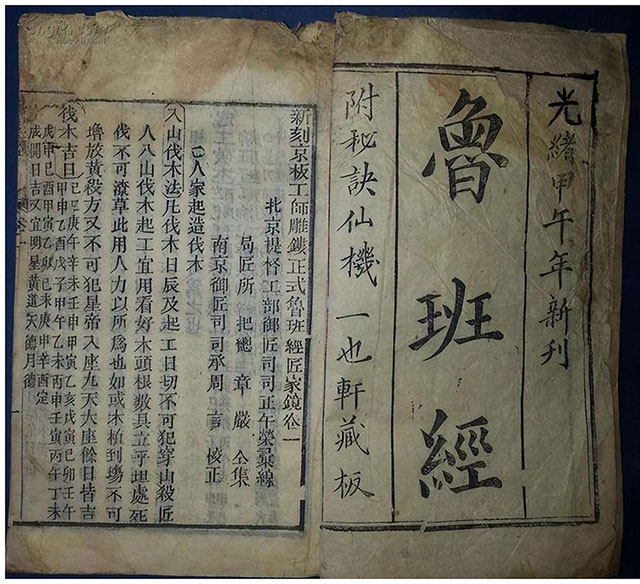 光緒甲午年新刊
魯班經
附秘訣仙機 一也軒藏板
新刻京板工師雕鏤正式魯班經匠家鏡卷一
北京提督工部御匠司司正午榮彙線
局匠所 把總 章 嚴 仝集
南京御匠司司承周 言 校正
人家起造伐木
入山伐木法凡伐木日辰及起工日切不可犯穿山殺匠
人入山伐木起工宜用看好木頭根數具立平坦處
伐不可潦草此用人力以所為也如或木植到塲不可
堆放黃殺方又不可犯星帝入座九天大座餘日皆吉
伐木吉日 己巳庚午辛未壬申甲寅乙亥戊寅己卯壬午
甲申乙酉戊子甲午乙未丙申壬寅丙午丁未
戊申己酉甲寅乙卯己未庚申辛酉定
成開日吉又宜明星黃道天德月德